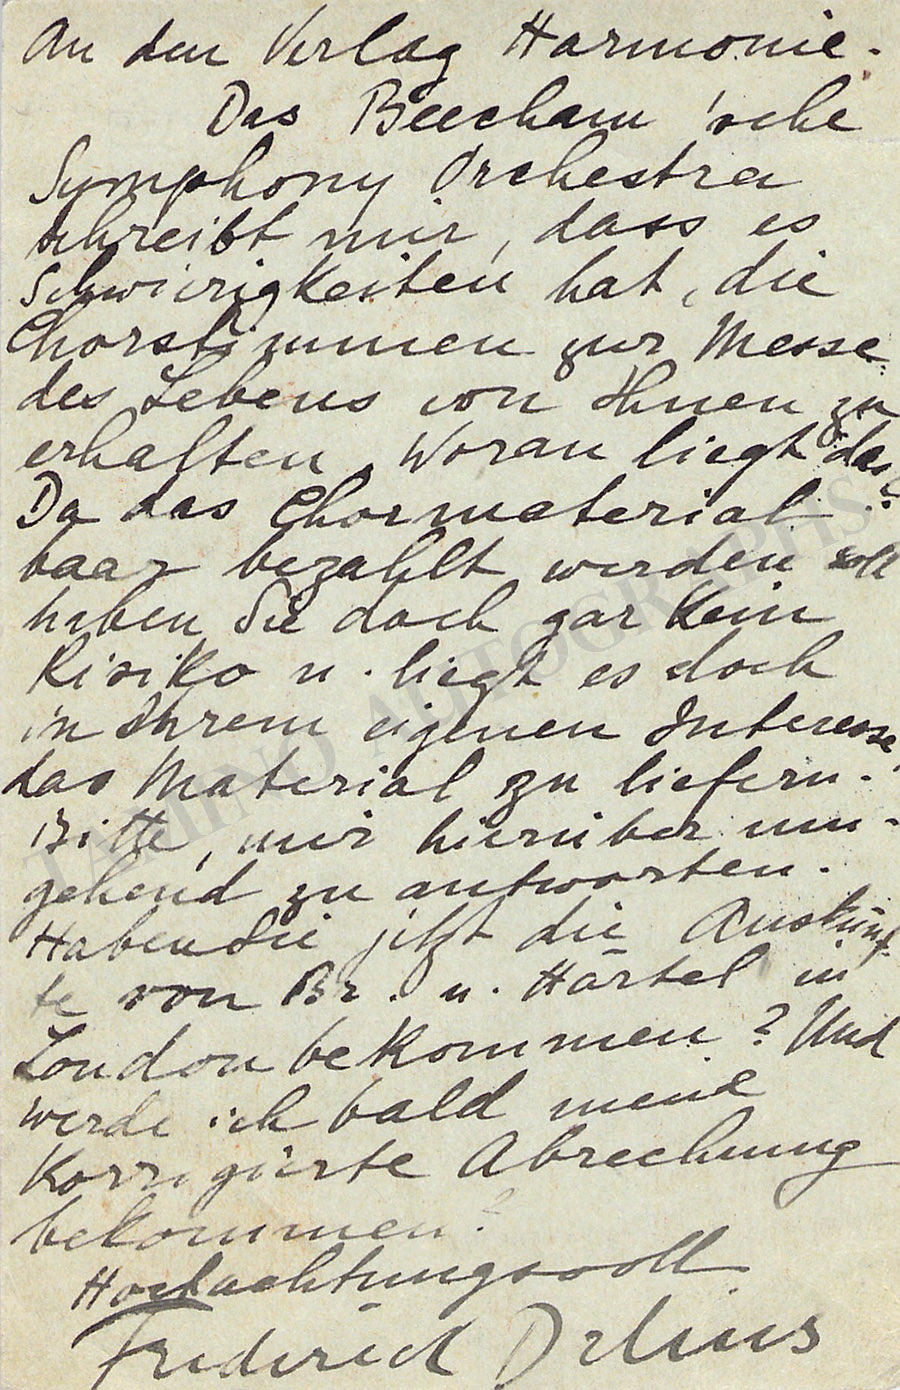 An den Verlag Harmonie.
Das Beecham'sche
Symphony Orchestra
schreibt mir, dass es
Schwierigkeiten hat, die
Chorstimmen zur Messe
des Lebens von Ihnen zu
erhalten. Woran liegt das?
Da das Chormaterial
baar bezahlt werden soll
haben Sie doch gar kein
Risiko u. liegt es doch
in Ihrem eigenen Interesse
das Material zu liefern.
Bitte, mir hierüber um-
gehend zu antworten.
Haben Sie jetzt die Auskünf-
te von Br. u. Härtel in
London bekommen? Und
werde ich bald meine
Korrigierte Abrechnung
bekommen?
Hochachtungsvoll
Frederick Delius
TAMINO AUTOGRAPHS